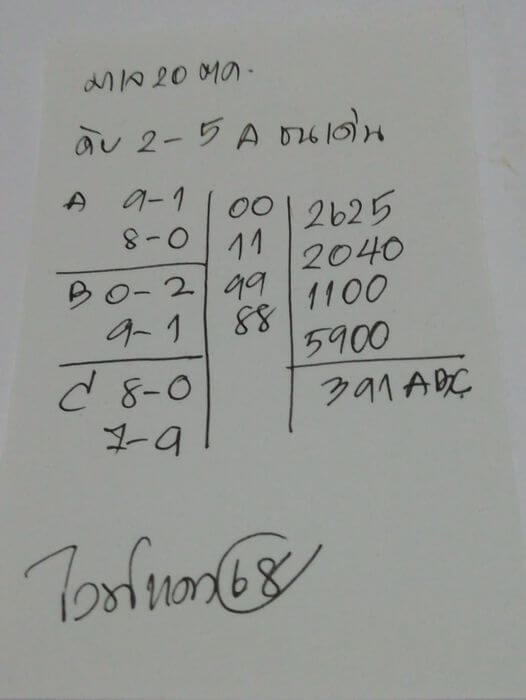 มาเล 20 ตค.
ดับ 2-5 A ชนเด่น
A 9-1 00 2625
8-0 11 2040
B 0-2 99 1100
9-1 88 5900
C 8-0 391 ABC
7-9
68